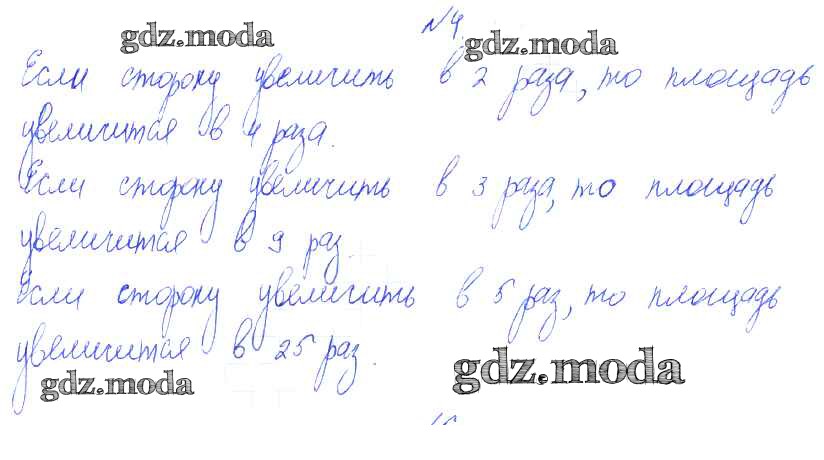 №4.
gdz.moda
gdz.moda
Если сторону увеличить в 2 раза, то площадь
увеличится в 4 раза.
Если сторону увеличить в 3 раза, то площадь
увеличится в 9 раз.
Если сторону увеличить в 5 раз, то площадь
увеличится в 25 раз.
gdz.moda
gdz.moda